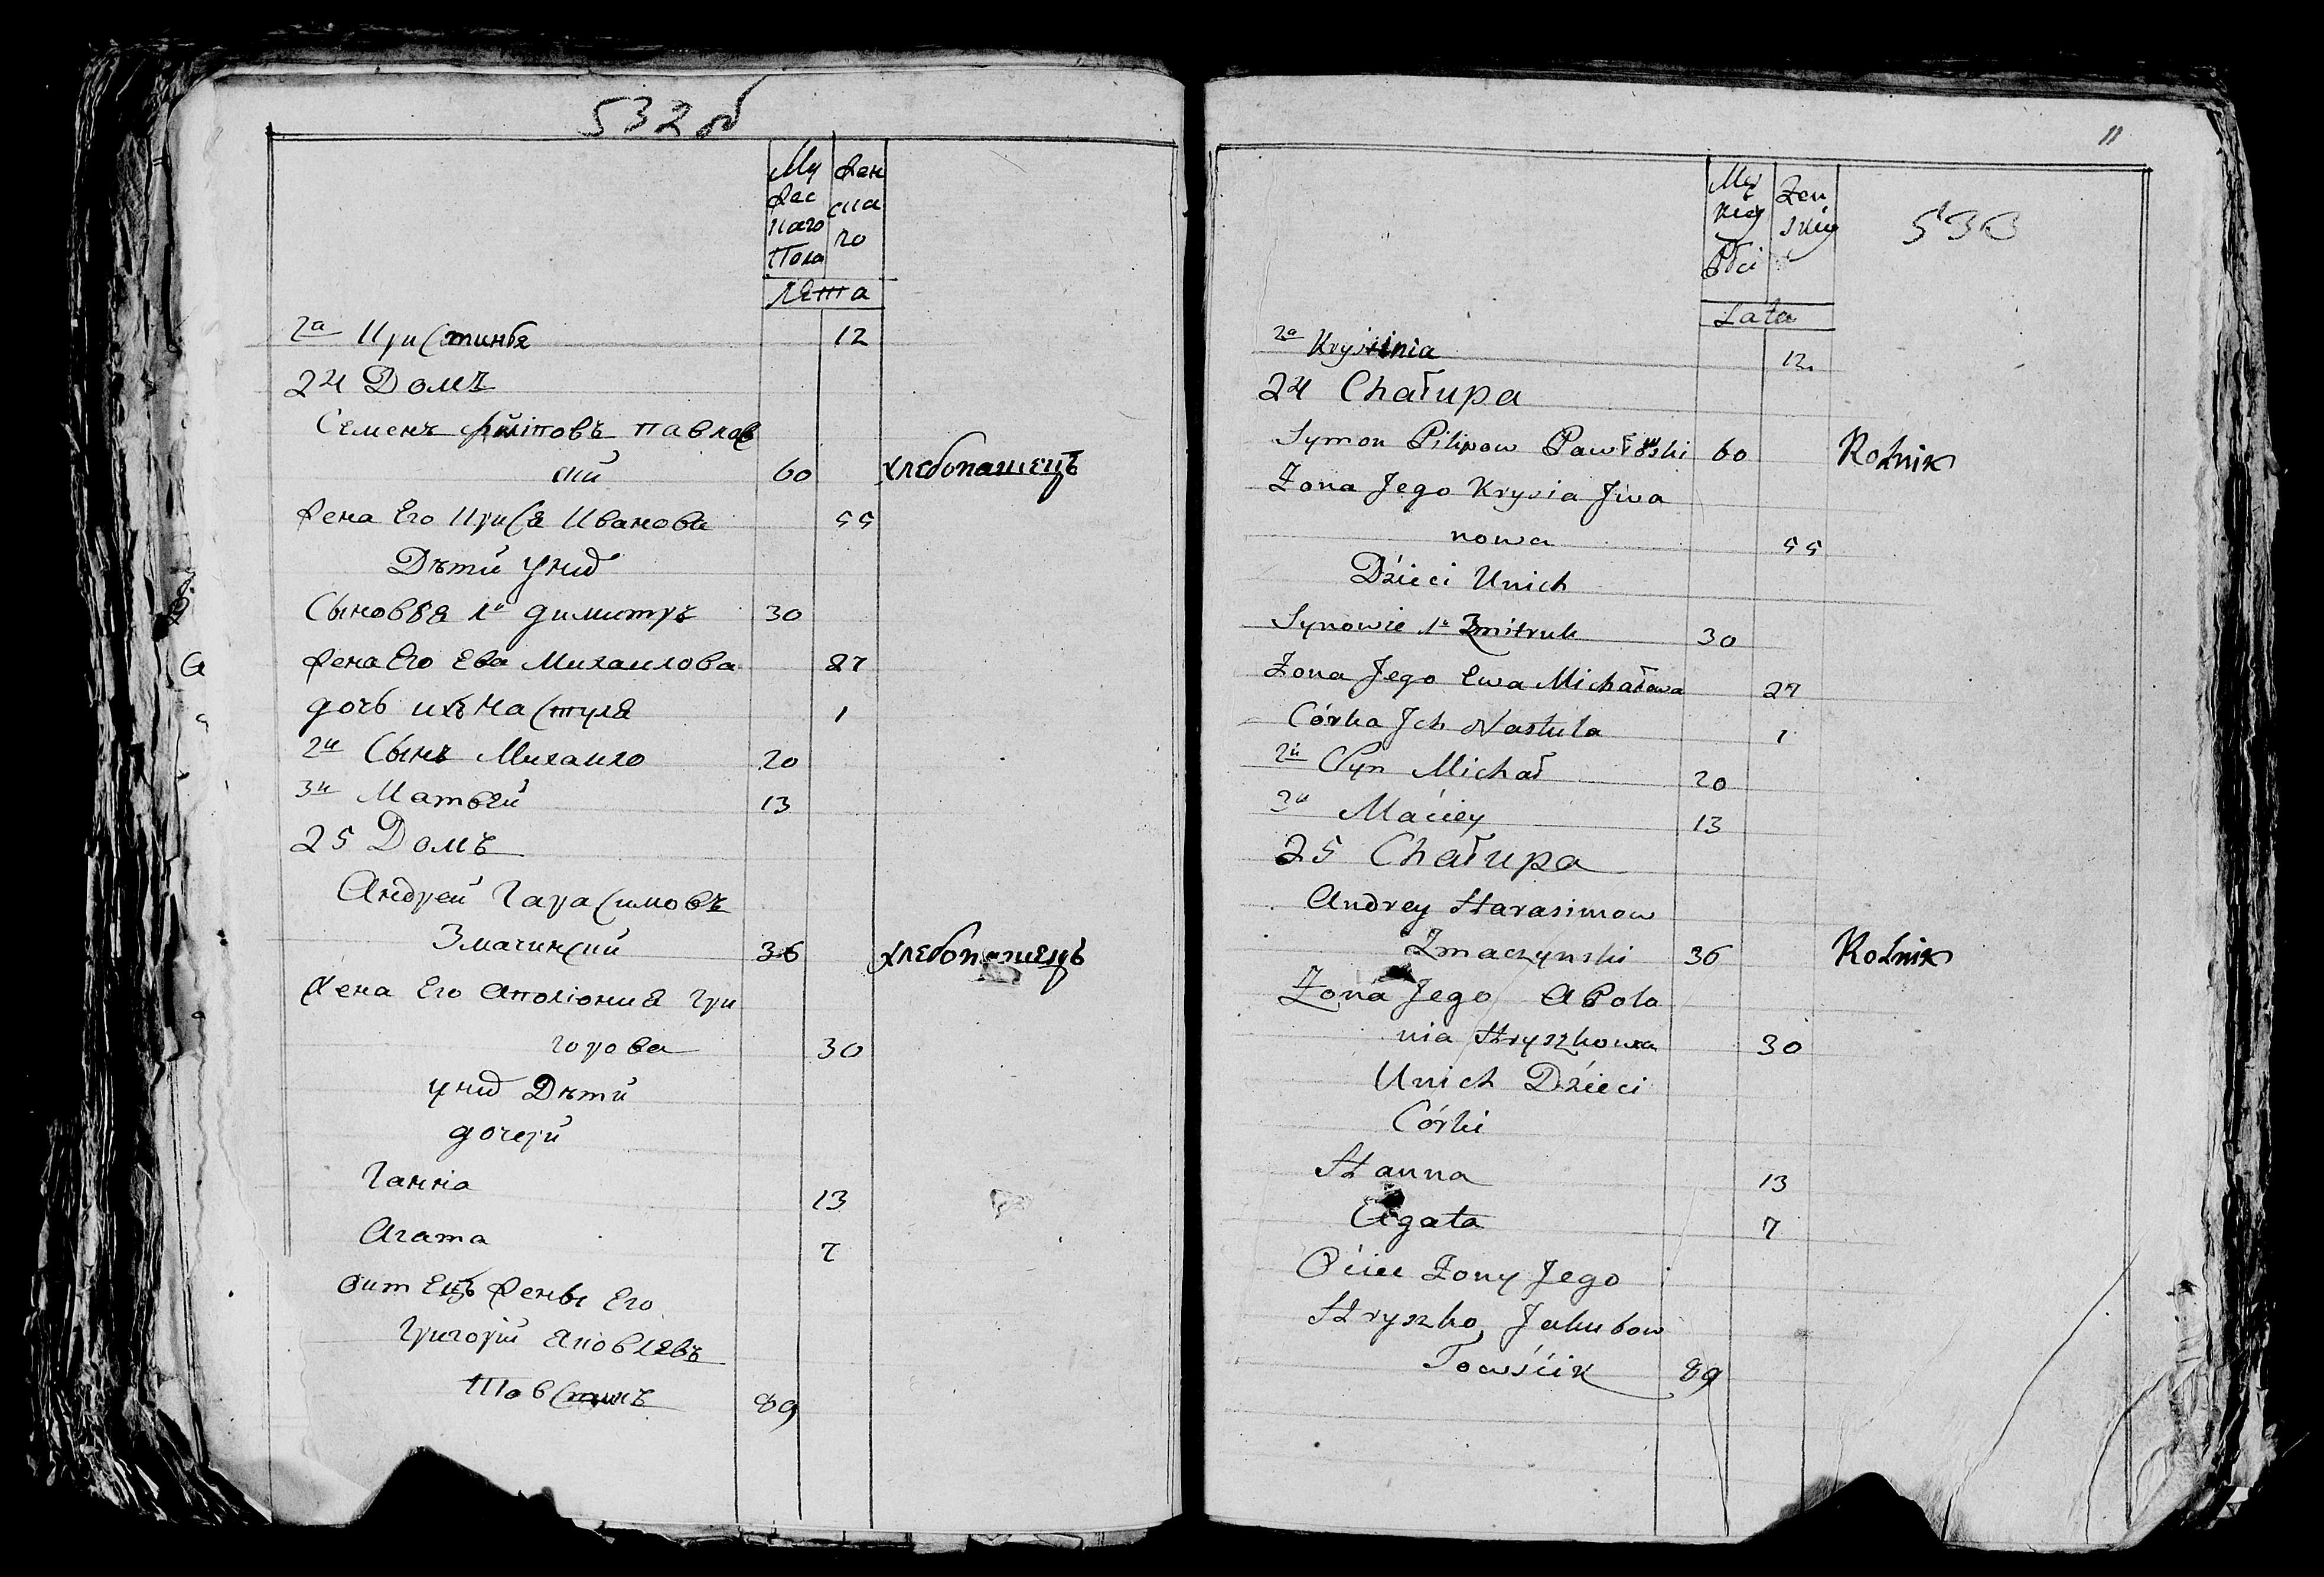 532 об
Му
жес
каго
Пола
Жен
ска
го
лѣта
2а Кристиня 12
24 Домъ
Семенъ Филіповъ Павлов
скій 60 хлебопашецъ
Жена Его Крися Иванова 55
Дѣти у нид
Сыновья 1й Димитръ 30
Жена Его Ева Михаилова 27
дочь ихъ Настуля 1
2й Сынъ Михаило 20
3й Матвѣй 13
25 Домъ
Андрей Гарасимовъ
Змачинскій 36 хлебопашецъ
Жена Его Аполіония Гри
горова 30
у нид Дѣти
дочери
Ганна 13
Агата 7
Жены Его
Григорій Яковлевъ
Товстикъ 89
11
533
Mę
Płci
Żeń
skiey
Lata
2a Krystinia 12
24 Chałupa
Symon Pilipow Pawłowski 60 Rolnik
Żona Jego Krysia Jwa
nowa 55
Dzieci Unich
Synowie 1n Zmitruk 30
Żona Jego Ewa Michałowa 27
Córka Jch Nastula 1
2n Syn Michał 20
3n Maciey 13
25 Chałupa
Andrey Harasimow
Zmaczynski 36 Rolnik
Żona Jego APolo
nia Hryszkowa 30
Unich Dzieci
Córki
Hanna 13
Agata 7
Ociec Żony Jego
Hryszko Jakubow
Towścik 89